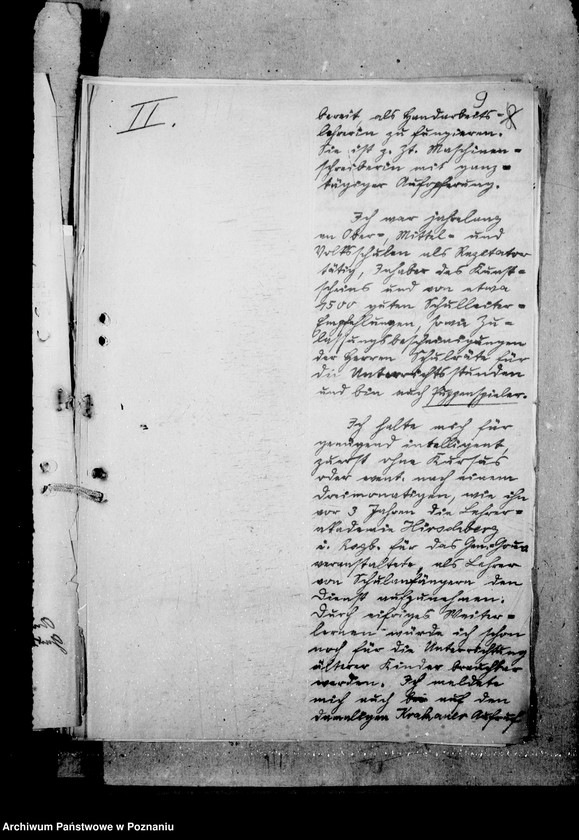 II.
9
bereit, als Handarbeits-
lehrerin zu fungieren.
Sie ist z. Zt. Maschinen-
schreiberin mit ganz-
tägiger Aufopferung.
Ich war jahrelang
an Ober-, Mittel- und
Volksschulen als Rezitator
tätig, Inhaber des Kunst-
scheins und von etwa
4500 guten Schulleiter-
Empfehlungen, sowie Zu-
lassungsbescheinigungen
der Herren Schulräte für
die Unterrichtsstunden
und bin auch Puppenspieler.
Ich halte mich für
genügend intelligent,
zuerst ohne Kursus
oder event. nach einem
dreimonatigen, wie ihn
vor 3 Jahren die Lehrer-
akademie Hirschberg
i. Rsgb. für das Gen. Gouv.
veranstaltete, als Lehrer
von Schulanfängern den
Dienst aufzunehmen.
Durch eifriges Weiter-
lernen würde ich schon
noch für die Unterrichtung
älterer Kinder brauchbar
werden. Ich meldete
mich auch auf den
damaligen Krakauer Aufruf
Archiwum Państwowe w Poznaniu